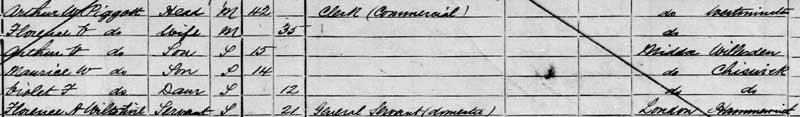 Arthur W Piggott Head M 42 Clerk (Commercial) do Westminster
Florence V do Wife M 35 do
Arthur V do Son S 15 Middx Willesden
Maurice W do Son S 14 do Chiswick
Violet F do Daur S 12 do do
Florence A Wiltshire Servant S 21 General Servant (domestic) London Hammersmith